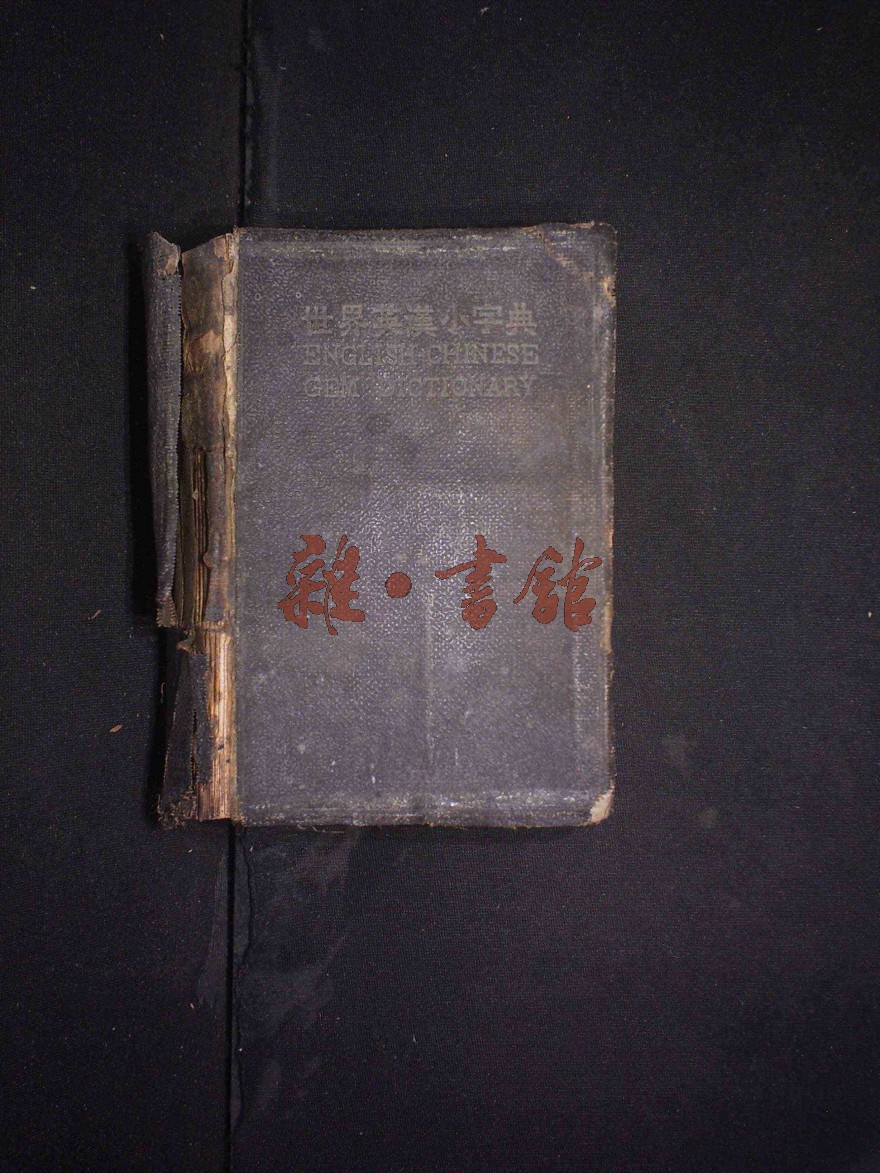 世界英漢小字典
ENGLISH-CHINESE
GEM DICTIONARY
雜·書館